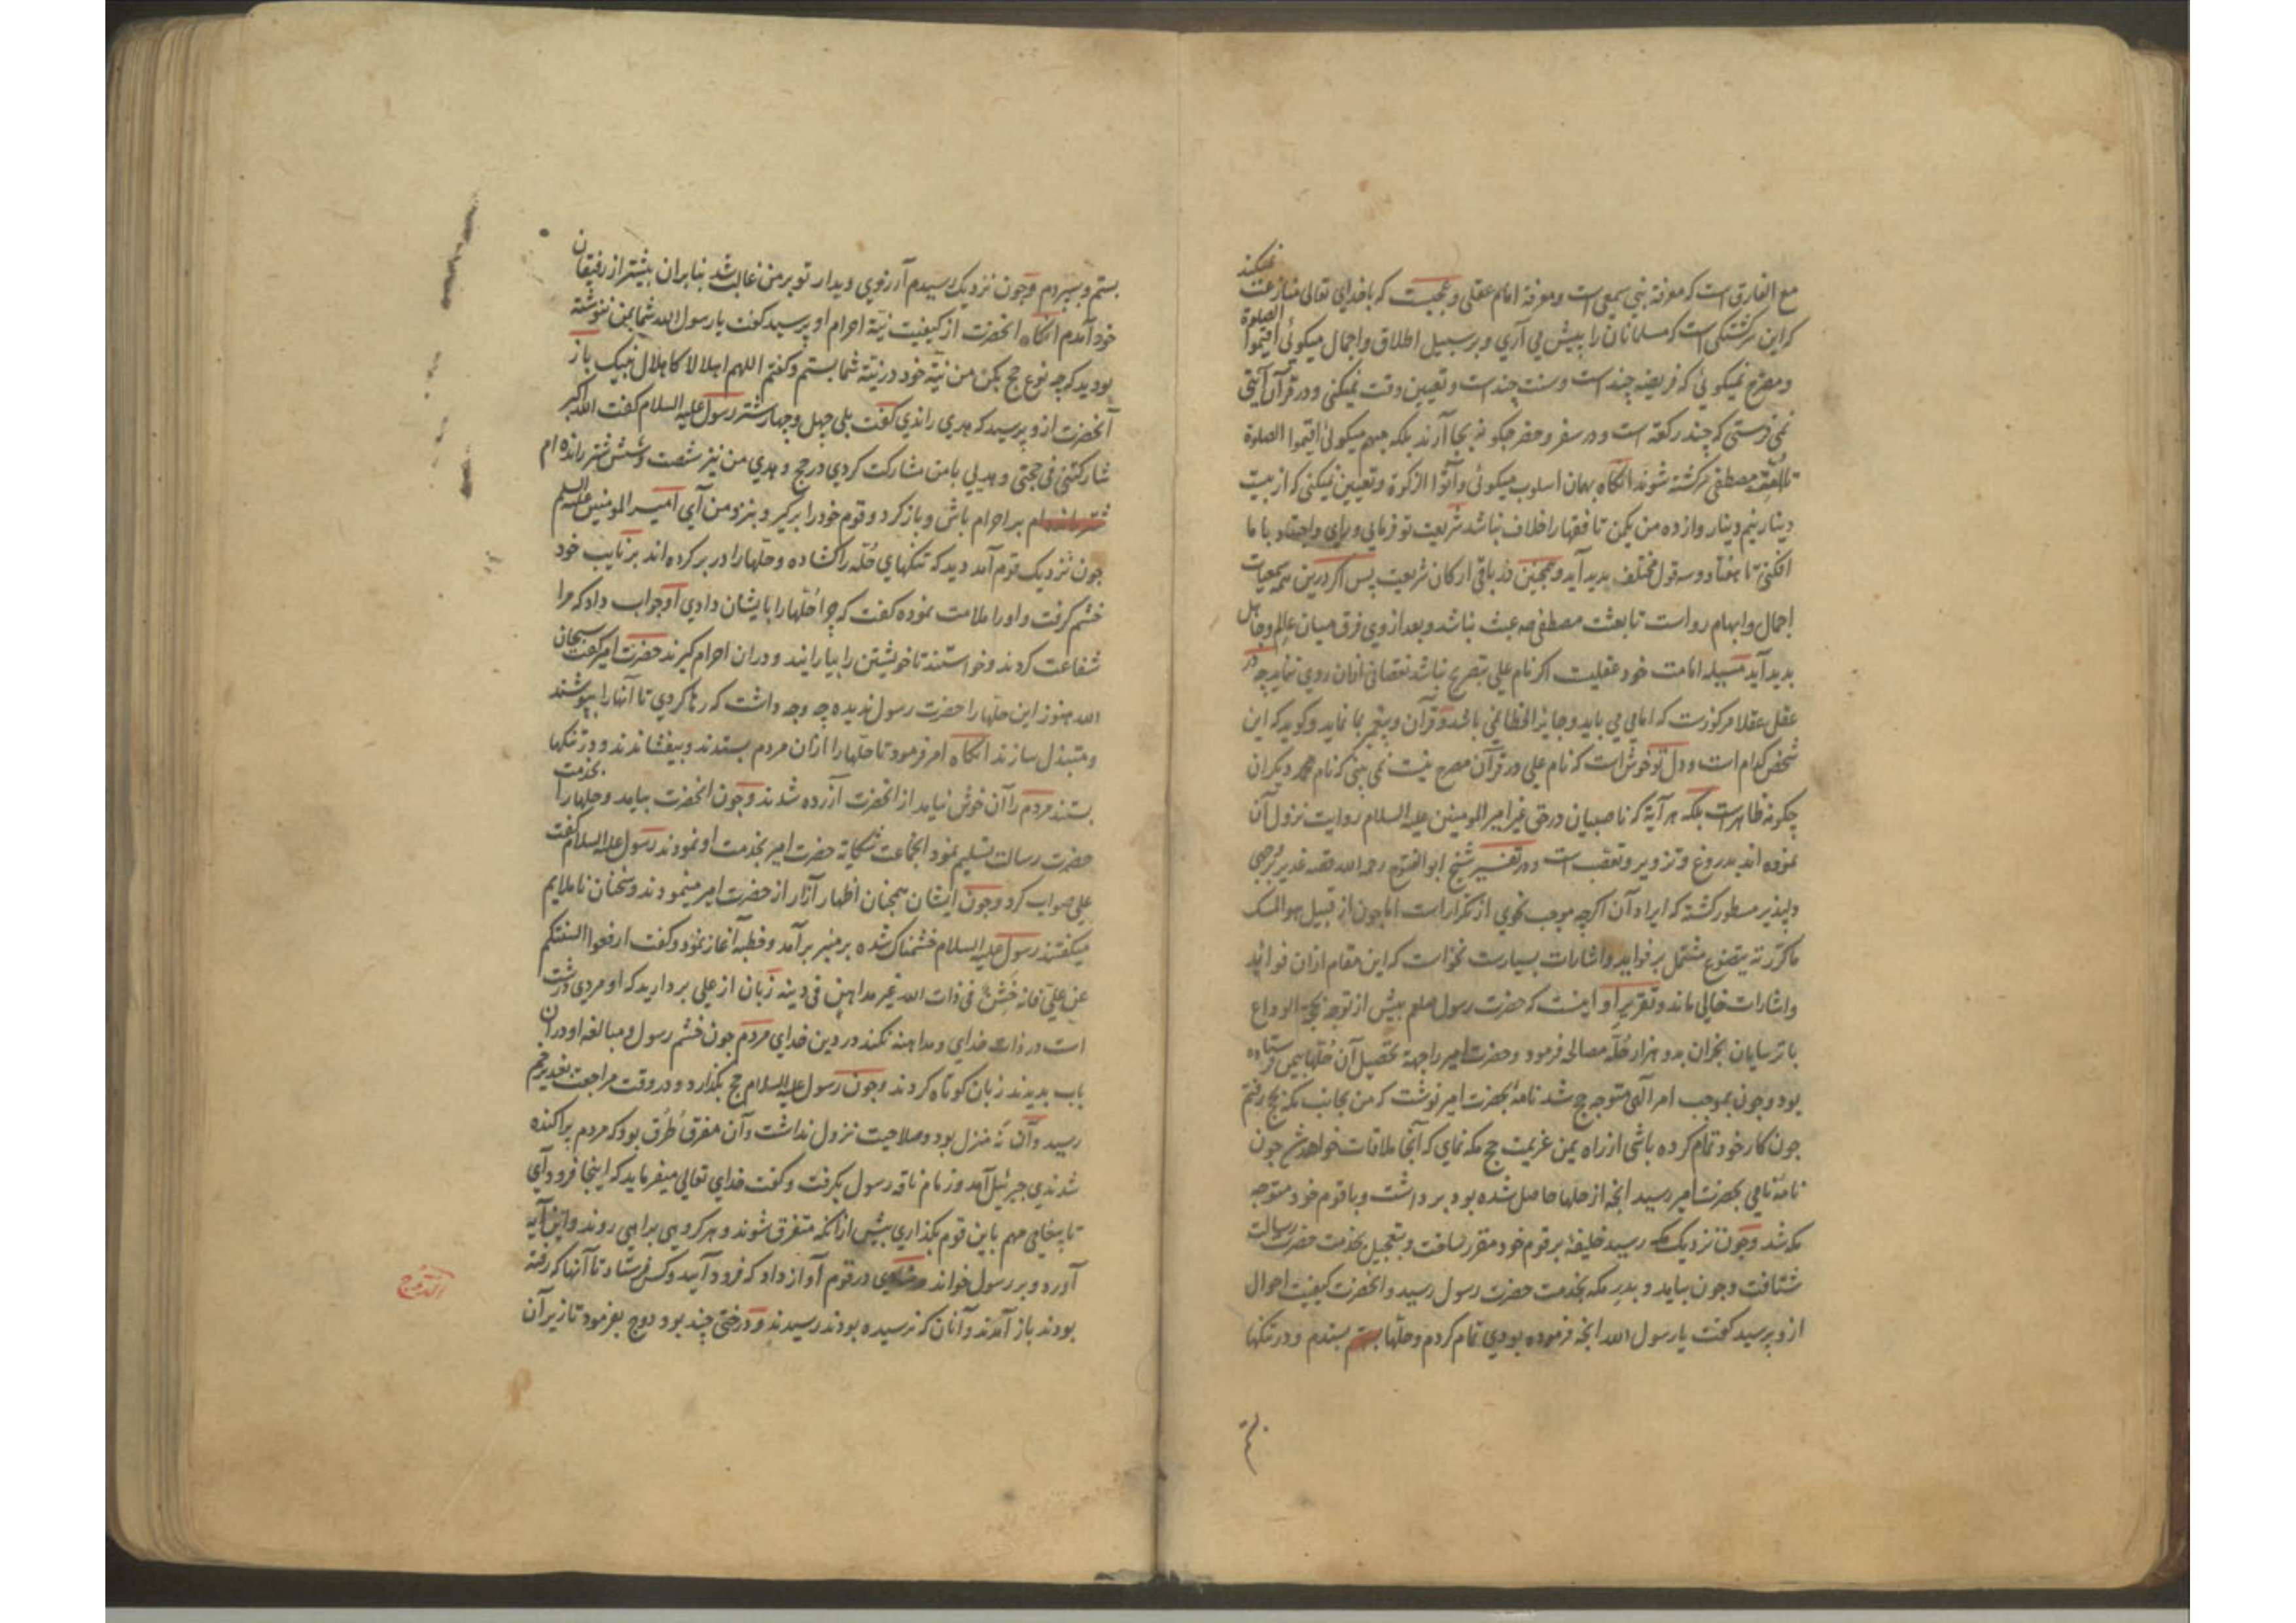 مع الفارق است که معرفة نبی سمعی است و معرفة امام عقلی و عجبست که با خدای تعالی منازعت نمیکند
که این سرگشتگی است که مسلمانان را پیش می آری و بر سبیل اطلاق و اجمال میکوئی اقیموا الصلوة
و مصرح نمیکوئی که فریضه چند است و سنت چند است و تعیین وقت نمیکنی و در قرآن آیتی
نمی فرستی که چند رکعة است و در سفر و حضر چکونه بجا آرند بلکه مبهم میکوئی اقیموا الصلوة
تا امت مصطفی سرکشته شوند انکاه بهمان اسلوب میکوئی وآتوا الزکوة و تعیین نمیکنی که از بیست
دینار نیم دینار و از ده من یکمن تا فقها را خلاف نباشد شریعت تو فرمایی و رای و اجتهاد با ما
افکنی تا هفتاد و سه قول مختلف پدید آید و همچنین در باقی ارکان شریعت پس اکر درین همه سمعیات
اجمال و ابهام رواست تا بعثت مصطفی صه عبث نباشد و بعد از وی فرق میان عالم و جاهل
پدید آید مسیله امامت خود عقلیست اکر نام علی بتصریح نباشد نقصانی ازان روی ننماید چه در
عقل عقلا مرکوزست که امامی می باید و جایز الخطا نمی باشد و قرآن و پیغمبر بما نماید و کوید که این
شخص کدام است و دل تو خوش است که نام علی در قرآن مصرح نیست نمی بینی که نام دیکران
چکونه ظاهر است بلکه هر آیة که ناصبیان در حق غیر امیر المومنین علیه السلام روایت نزول آن
نموده اند بدروغ و تزویر و تعصب است و در تفسیر شیخ ابو الفتوح رحمه الله قصه غدیر بوجهی
دلپذیر مسطور کشته که ایراد آن اکرچه موجب نحوی از تکرار است اما چون از قبیل هو المسک
ما کررته یتضوع مشتمل بر فواید و اشارات بسیارست نخواست که این مقام ازان فواید
و اشارات خالی ماند و تقریر او اینست که حضرت رسول صلعم پیش از توجه بحجة الوداع
با ترسایان نجران بدو هزار حله مصالحه فرمود و حضرت امیر را جهة تحصیل آن حلها بیمن فرستاده
بود و چون بموجب امر الهی متوجه حج شد نامه بحضرت امیر نوشت که من بجانب مکه بحج رفتم
چون کار خود تمام کرده باشی از راه یمن عزیمت حج مکه نمای که آنجا ملاقات خواهد شد چون
نامه نامی بحضرت امیر رسید انچه از حلها حاصل شده بود برداشت و با قوم خود متوجه
مکه شد و چون نزدیک مکه رسید خلیفة بر قوم خود مقرر ساخت و بتعجیل بخدمت حضرت رسالت
شتافت و چون بیامد و بدر مکه بخدمت حضرت رسول رسید و انحضرت کیفیت احوال
ازو پرسید کفت یا رسول الله انچه فرموده بودی تمام کردم و حلها بستدم و در تنکها
بستم و سپردم و چون نزدیک رسیدم آرزوی دیدار تو بر من غالب شد بنابران پیشتر از رفیقان
خود آمدم انکاه انحضرت از کیفیت نیة احرام او پرسید کفت یا رسول الله شما بمن ننوشته
بودید که چه نوع حج بکن من نیة خود در نیة شما بستم و کفتم اللهم اهلالا کاهلال نبیک باز
آنحضرت ازو پرسید که هدی راندی کفت بلی چهل و چهار شتر رسول علیه السلام کفت الله اکبر
شارکتنی فی حجتی و هدیی با من مشارکت کردی در حج و هدی من نیز شصت و شش شتر رانده ام
بر احرام باش و بازکرد و قوم خود را برکیر و بنزد من آی امیر المومنین علیه السلم
چون نزدیک قوم آمد دید که تنکهای حله را کشاده و حلها را در بر کرده اند بر نایب خود
خشم کرفت و او را ملامت نموده کفت که چرا حلها را بایشان دادی او جواب داد که مرا
شفاعت کردند و خواستند تا خویشتن را بیارایند و دران احرام کیرند حضرت امیر کفت سبحان
الله هنوز این حلها را حضرت رسول ندیده چه وجه داشت که رها کردی تا آنها را بپوشند
و متبذل سازند انکاه امر فرمود تا حلها را ازان مردم بستدند و بیفشاندند و در تنکها
بستند مردم را آن خوش نیامد از انحضرت آزرده شدند و چون انحضرت بیامد و حلها را بخدمت
حضرت رسالت تسلیم نمود انجماعت شکایة حضرت امیر بخدمت او نمودند رسول علیه السلام کفت
علی صواب کرد و چون ایشان همچنان اظهار آزار از حضرت امیر مینمودند و سخنان ناملایم
میکفتند رسول علیه السلام خشمناک شده بر منبر برآمد و خطبه آغاز نمود و کفت ارفعوا السنتکم
عن علی فانه خشن فی ذات الله غیر مداهن فی دینه زبان از علی بردارید که او مردی درشت
است در ذات خدای و مداهنه نکند در دین خدای مردم چون خشم رسول و مبالغه او در آن
باب بدیدند زبان کوتاه کردند و چون رسول علیه السلام حج بکذارد و در وقت مراجعت بغدیر خم
رسید و آن نه منزل بود و صلاحیت نزول نداشت و آن مفرق طرق بود که مردم پراکنده
شدندی جبرئیل آمد و زمام ناقه رسول بکرفت و کفت خدای تعالی میفرماید که اینجا فرود آی
تا پیغامی مهم باین قوم بکذاری پیش از انکه متفرق شوند و هر کروهی براهی روند و این آیه
آورد و بر رسول خواند و منادی در قوم آواز داد که فرود آیید و کس فرستاد تا آنها که رفته
بودند باز آمدند و آنان که نرسیده بودند رسیدند و درختی چند بود دوج بفرمود تا زیر آن
الدوح